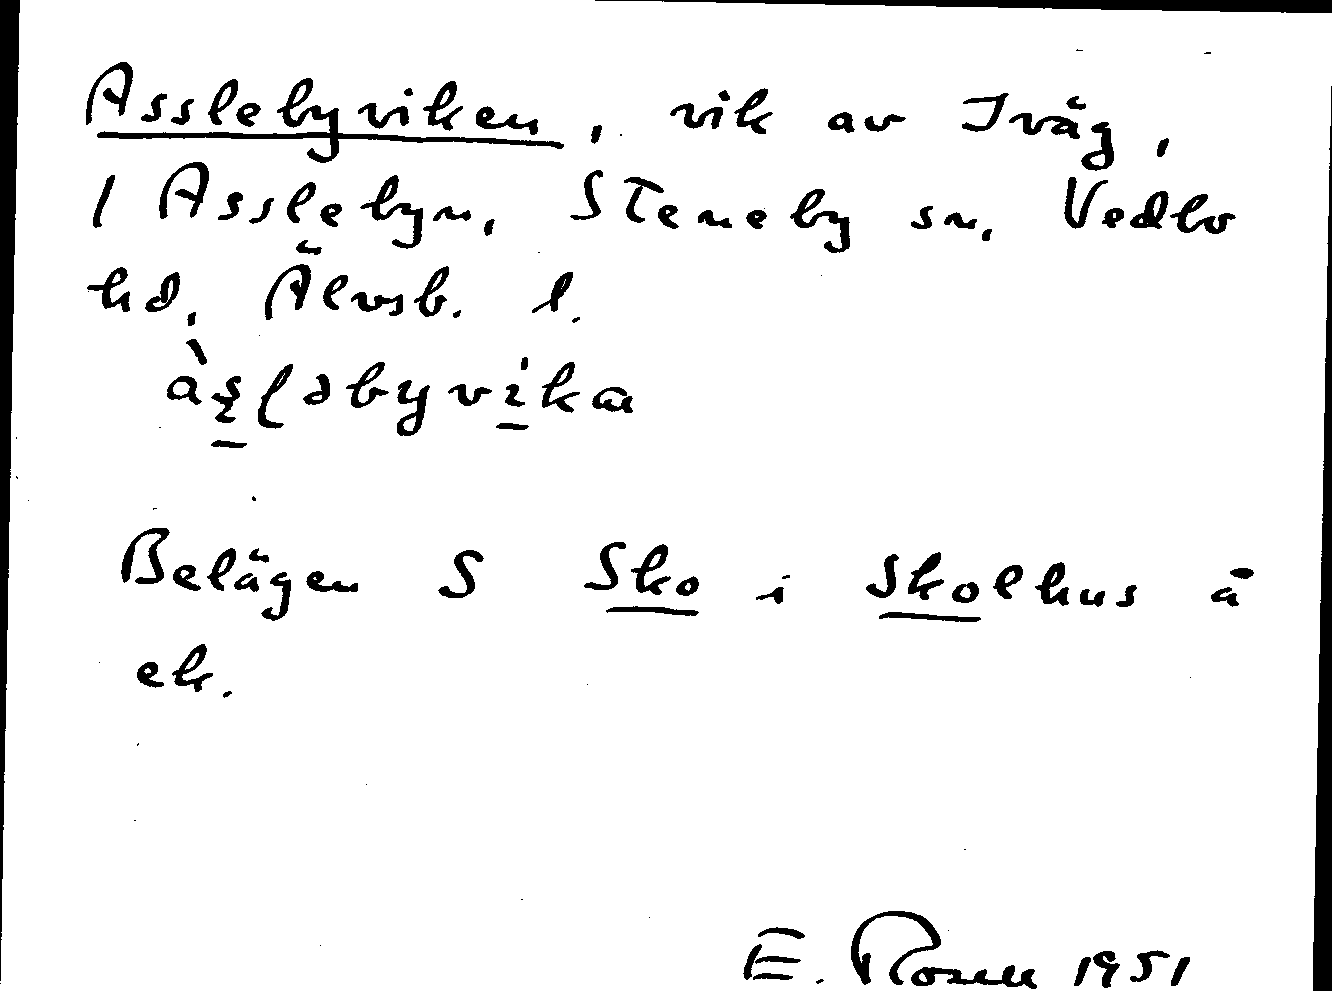 Asslebyviken, vik av Iväg,
/ Asslebyn, Steneby sn, Vedbo
hd, Älvsb. l.
Belägen S Sko i Skolhus å
ek.
E. Rosell 1951